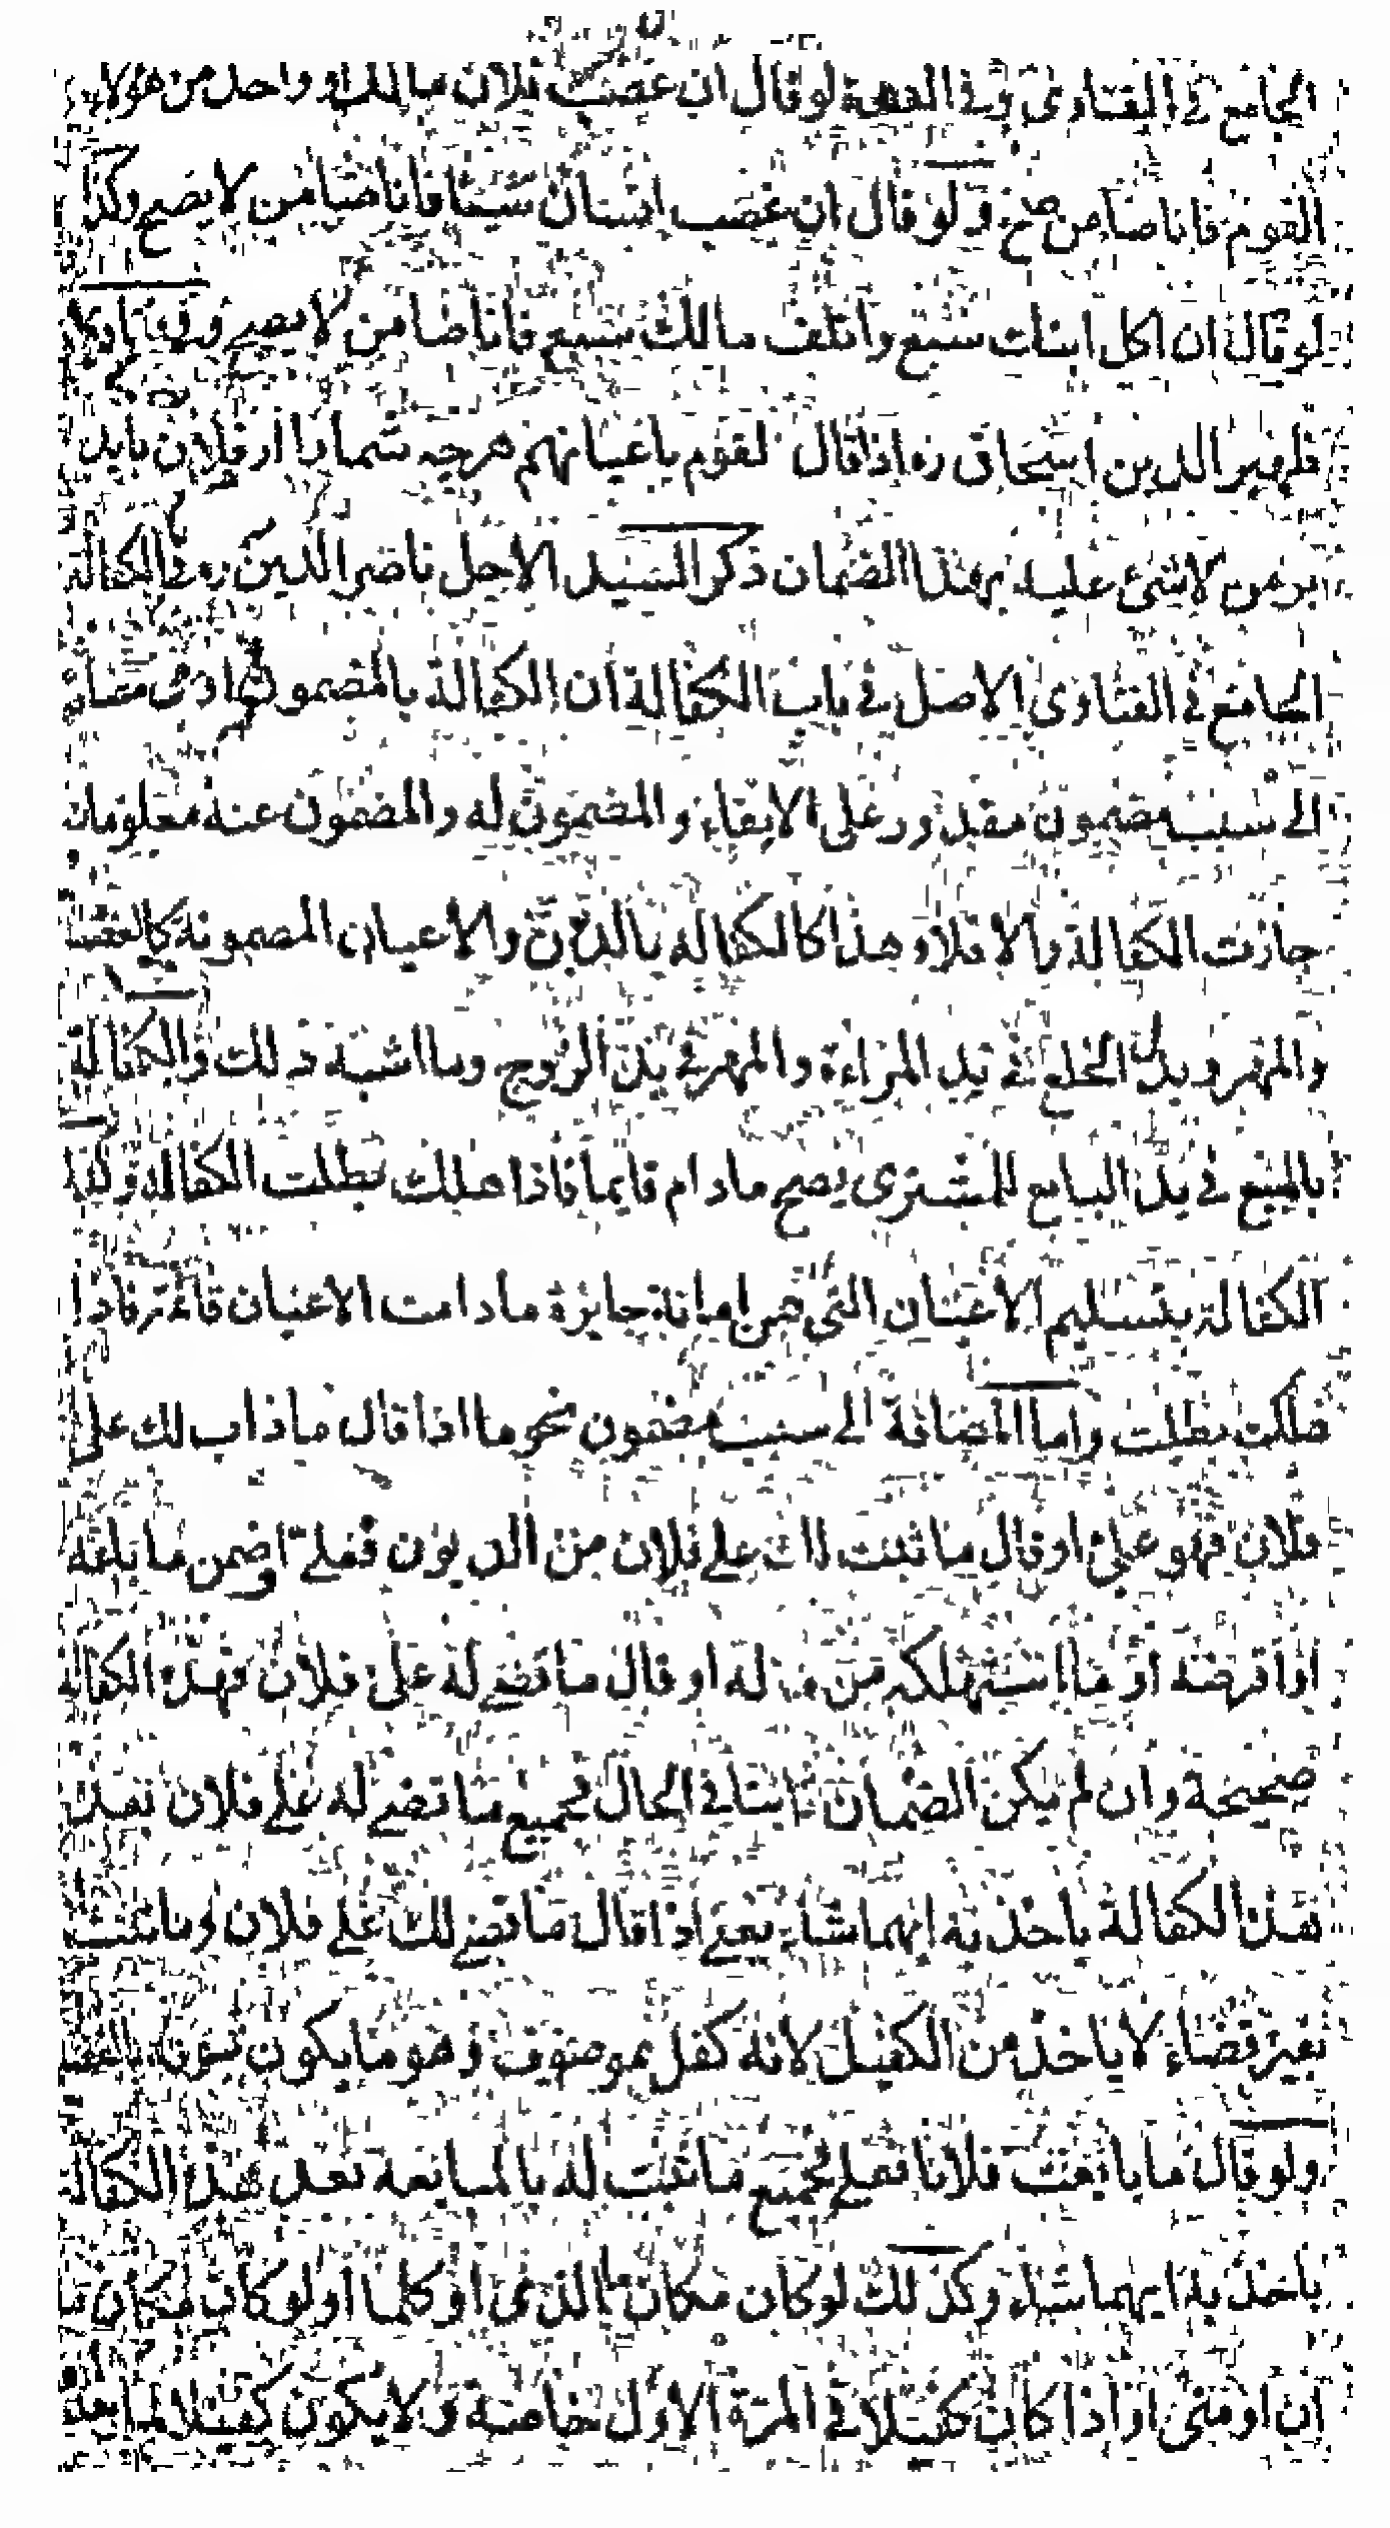 الجامع في الفتاوى وفي العدة لو قال ان غصب فلان مالك او واحد من هؤلاء
القوم فانا ضامن صح ولو قال ان غصب انسان شيئا فانا ضامن لا يصح وكذا
لو قال ان اكل ابنك سبع واتلف مالك سبع فانا ضامن لا يصح
ظهير الدين اسحاق ره اذا قال لقوم باعيانهم هرجه شمارا از فلان بايد
برمن لا شئ عليه بهذا الضمان ذكر السيد الاجل ناصر الدين ره في الكفالة
الجامع في الفتاوى الاصل في باب الكفالة ان الكفالة بالمضمون
الى سبب مضمون مقدور على الايفاء والمضمون له والمضمون عنه معلومان
جازت الكفالة والا فلا وهذا كالكفالة بالديون والاعيان المضمونة كالغصب
والمهر وبدل الخلع في يد المراءة والمهر في يد الزوج وما اشبه ذلك والكفالة
بالمبيع في يد البايع للمشترى يصح مادام قايما فاذا هلك بطلت الكفالة وكذا
الكفالة بتسليم الاعيان التي هي امانة جايزة مادامت الاعيان قائمة فاذا
هلكت بطلت واما المضافة الى سبب مضمون نحو ما اذا قال ما ذاب لك على
فلان فهو علي او قال ما ثبت لك على فلان من الديون فعلي او ضمن ما بايعه
او اقرضه او ما استهلكه من ماله او قال ما قضي له على فلان فهذه الكفالة
صحيحة وان لم يكن الضمان ثابتا في الحال فجميع ما قضي له على فلان بعد
هذا الكفالة ياخذ به ايهما شاء يعني اذا قال ما قضي لك على فلان لو ما ثبت
بغير قضاء لا ياخذ من الكفيل لانه كفل بموصوف وهو ما يكون
ولو قال ما بايعت فلانا فعلي فجميع ما ثبت له بالمبايعة بعد هذا الكفالة
ياخذ به ايهما شاء وكذلك لو كان مكان الذى او كلما او لو كان مكان ما
ان او متى او اذا كان كفيلا في المرة الاولى خاصة ولا يكون كفيلا